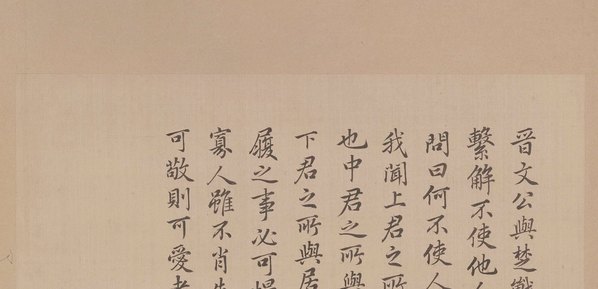 晉文公與楚戰
繫解不使他人
問曰何不使人
我聞上君之所
也中君之所與
下君之所與居
履之事必可
寡人雖不肖先
可敬則可愛者